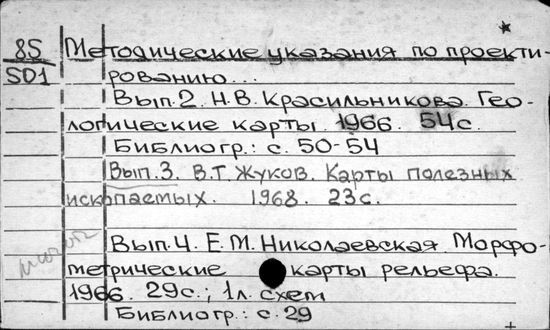 85 Методические указания по проекти-
501 рованию...
Вып.2. Н.В. Красильникова. Гео-
логические карты. 1966. 54с.
Библиогр.: с. 50-54
Вып.3. В.Т. Жуков. Карты полезных
ископаемых. 1968. 23с.
Вып.4. Е.М. Николаевская. Морфо-
метрические карты рельефа.
1966. 29с.; 1л. схем
Библиогр.: с. 29